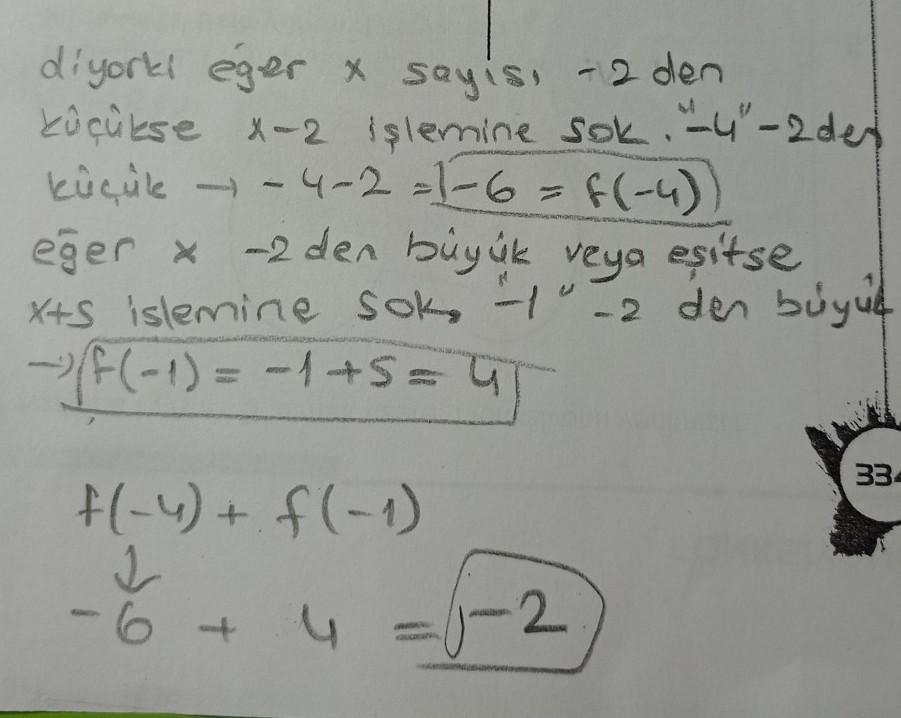 diyorki eğer x sayısı -2 den
küçükse x-2 işlemine sok. "-4" -2 den
küçük → -4-2 = -6 = f(-4)
eğer x -2 den büyük veya eşitse
x+5 islemine sok, "-1" -2 den büyük
→ f(-1) = -1+5 = 4
334
f(-4) + f(-1)
↓
-6 + 4 = -2